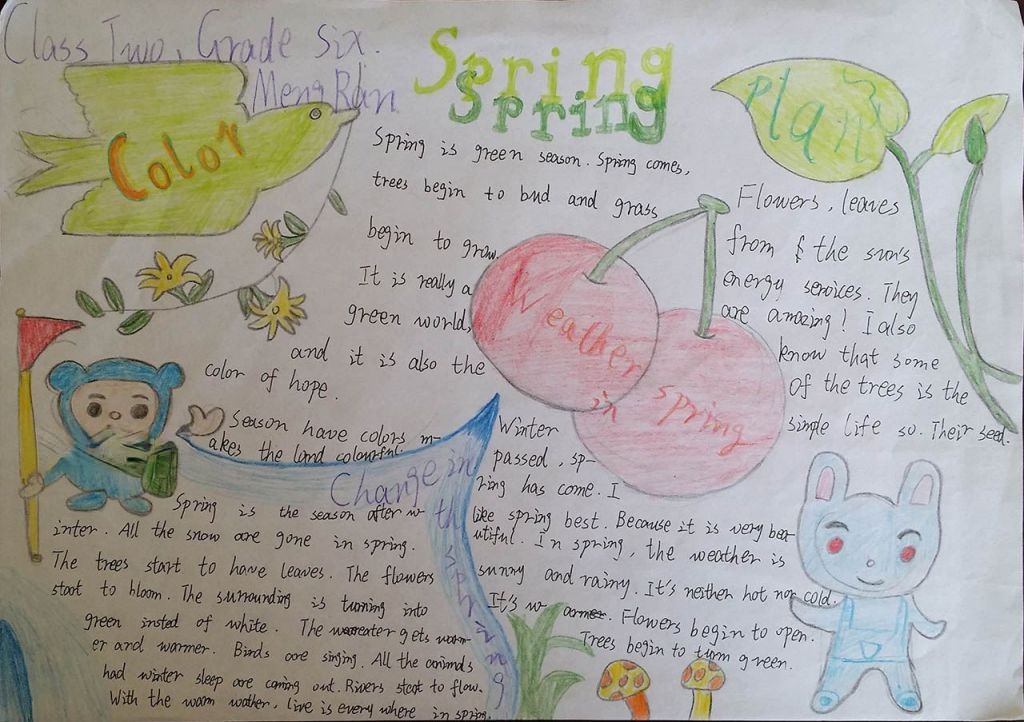 Class Two, Grade Six.
Meng Ran
Spring
Spring
Color
Spring is green season. Spring comes,
trees begin to bud and grass
begin to grow.
It is really a
green world,
and it is also the
color of hope.
Season have colors m-
akes the land colourful.
Plant
Flowers, leaves
from & the sun's
energy services. They
are amazing! I also
know that some
of the trees is the
simple life so. Their seed.
Weather
in
spring
Winter
passed, sp-
ring has come. I
like spring best. Because it is very bea-
utiful. In spring, the weather is
sunny and rainy. It's neither hot nor cold.
It's w- Flowers begin to open.
Trees begin to turn green.
Change in
th spring
Spring is the season after w-
inter. All the snow are gone in spring.
The trees start to have leaves. The flowers
start to bloom. The surrounding is turning into
green insted of white. The gets warm-
er and warmer. Birds are singing. All the animals
had winter sleep are coming out. Rivers start to flow.
With the warm wather, live is every where in spring.